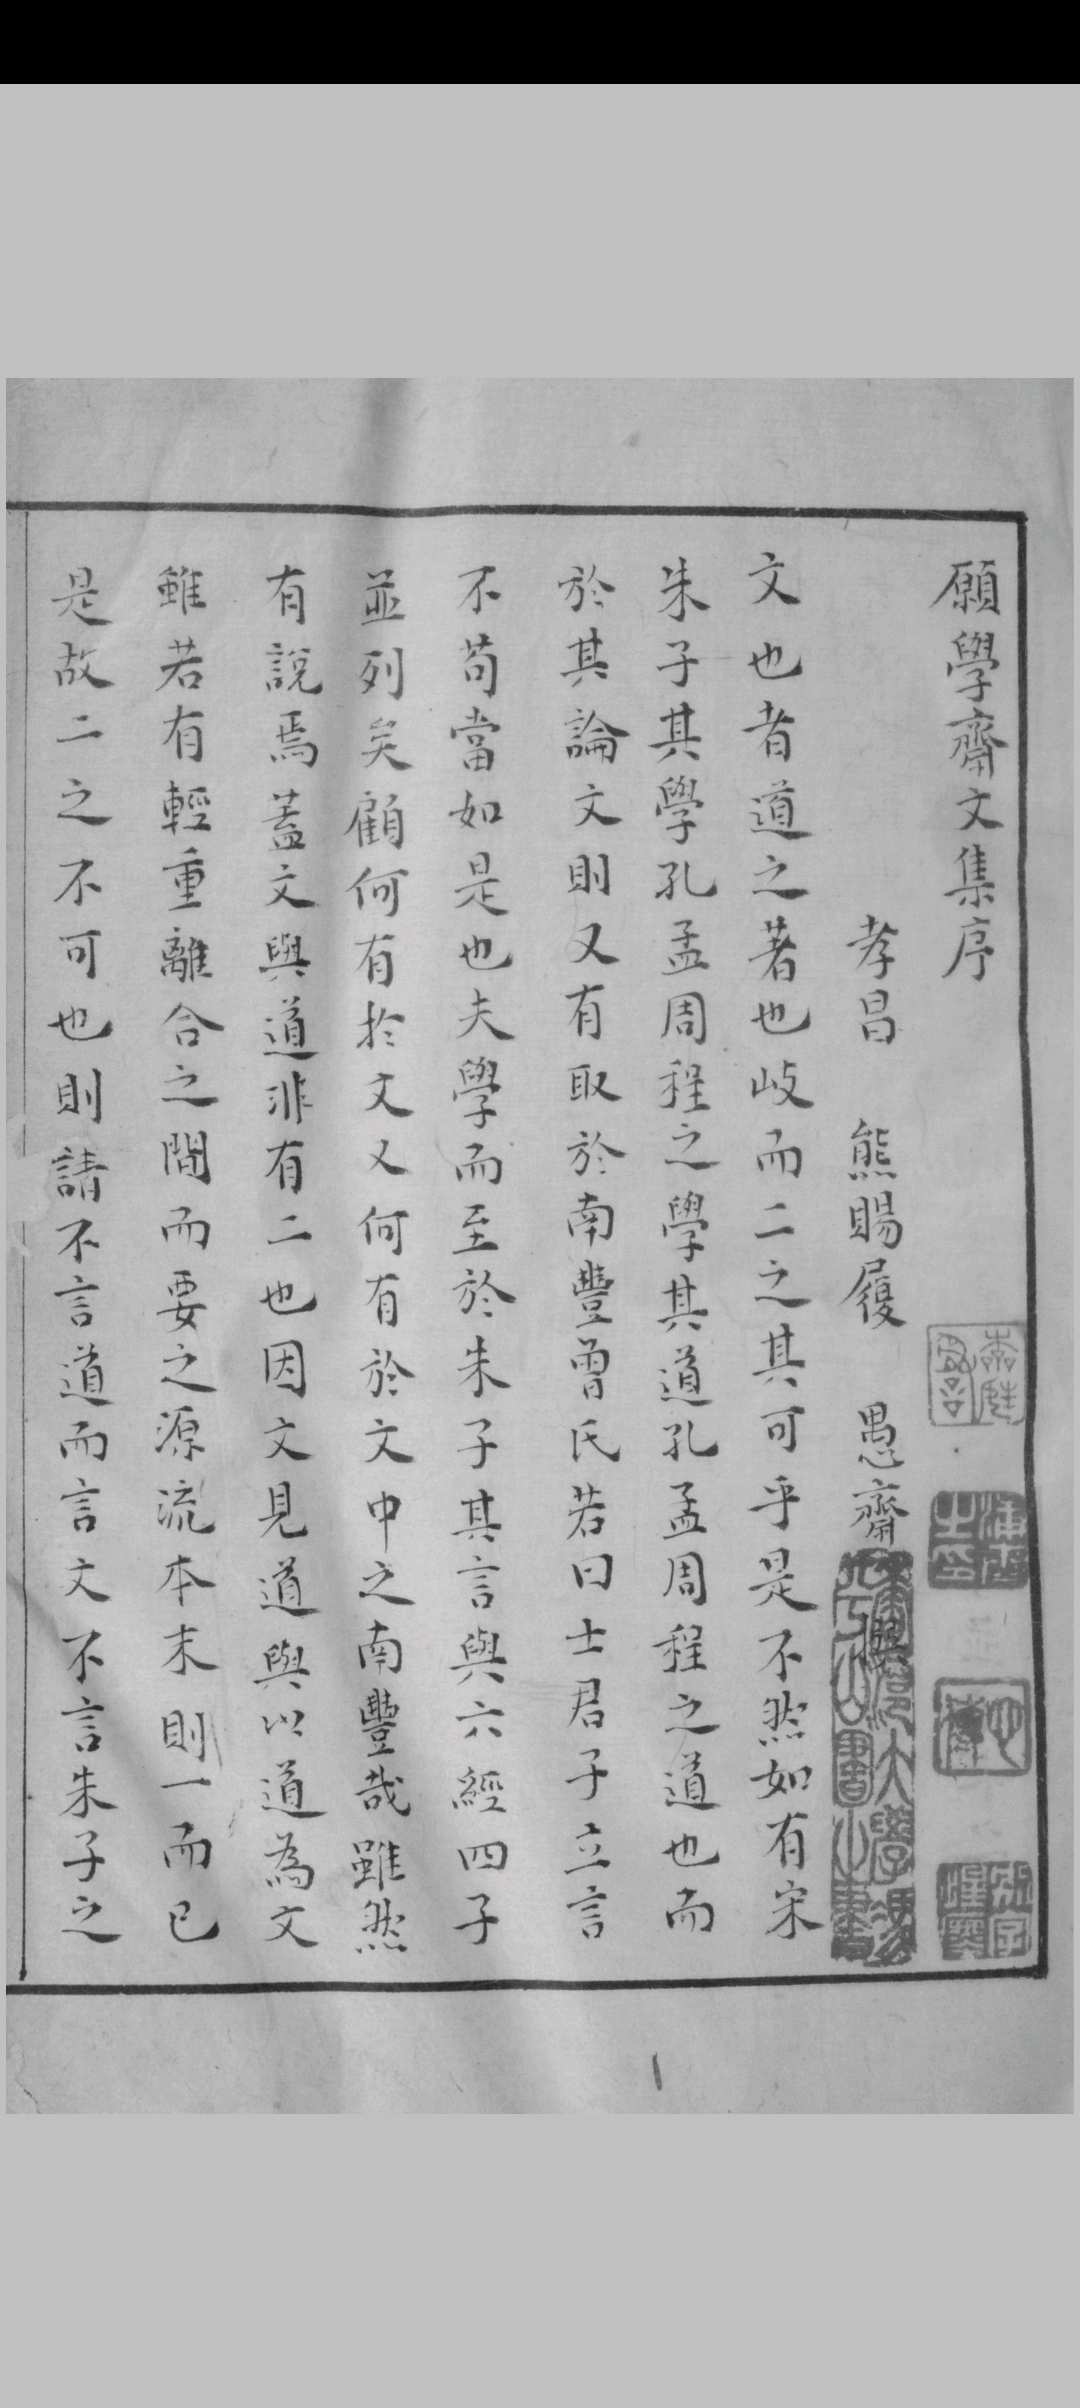 願學齋文集序
孝昌 熊賜履 愚齋撰
文也者道之著也岐而二之其可乎是不然如有宋
朱子其學孔孟周程之學其道孔孟周程之道也而
於其論文則又有取於南豐曾氏若曰士君子立言
不苟當如是也夫學而至於朱子其言與六經四子
並列矣顧何有於文又何有於文中之南豐哉雖然
有說焉蓋文與道非有二也因文見道與以道為文
雖若有輕重離合之間而要之源流本末則一而已
是故二之不可也則請不言道而言文不言朱子之